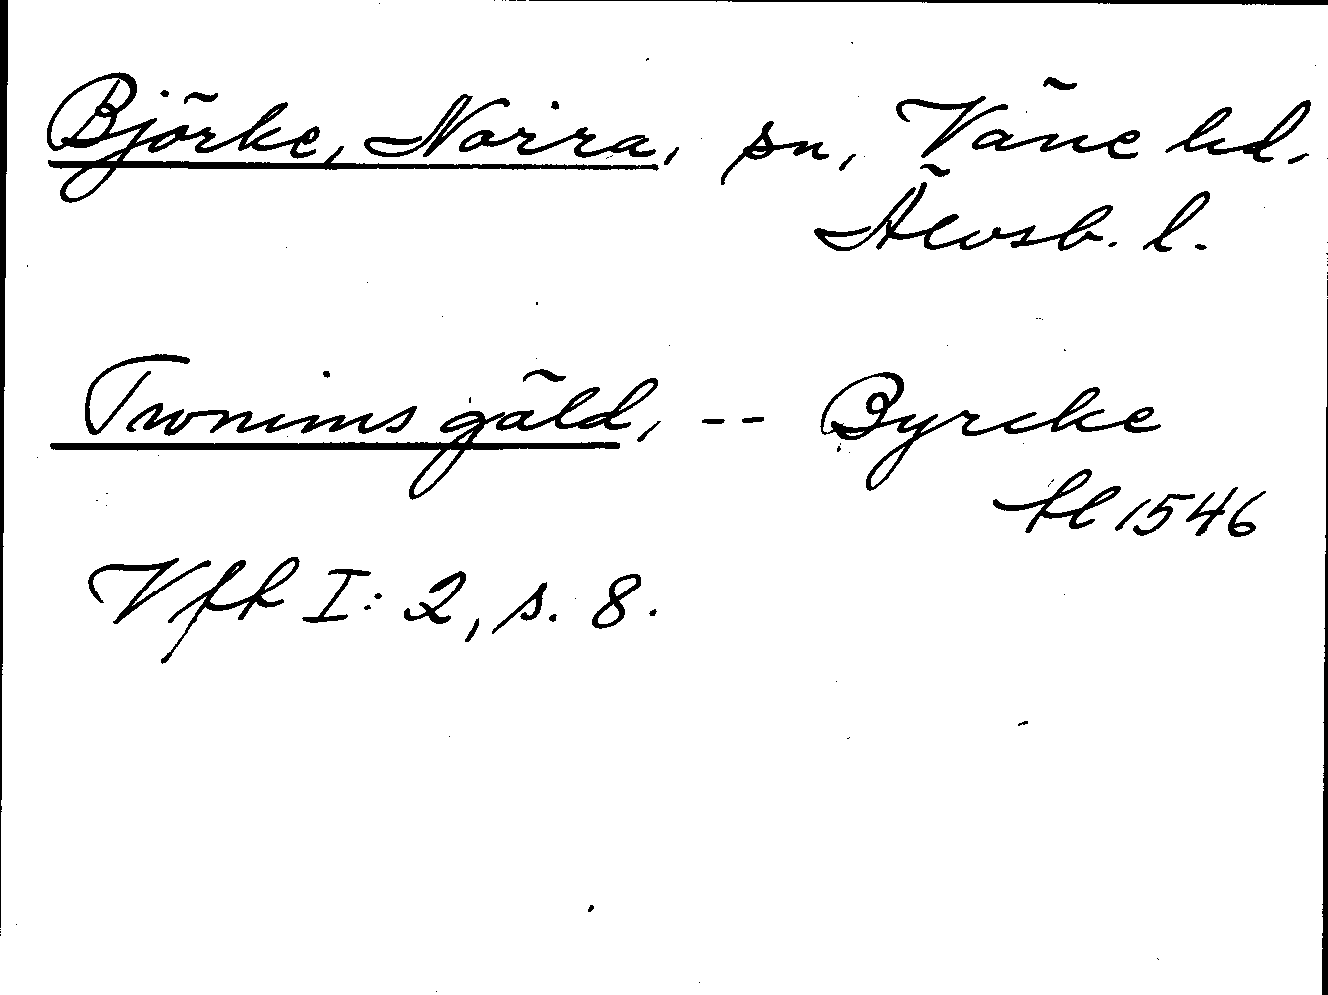 Björke, Norra, sn, Väne hd.
Älvsb. l.
Twnims gäld, -- Byrcke
hl 1546
Vfh I: 2, s. 8.